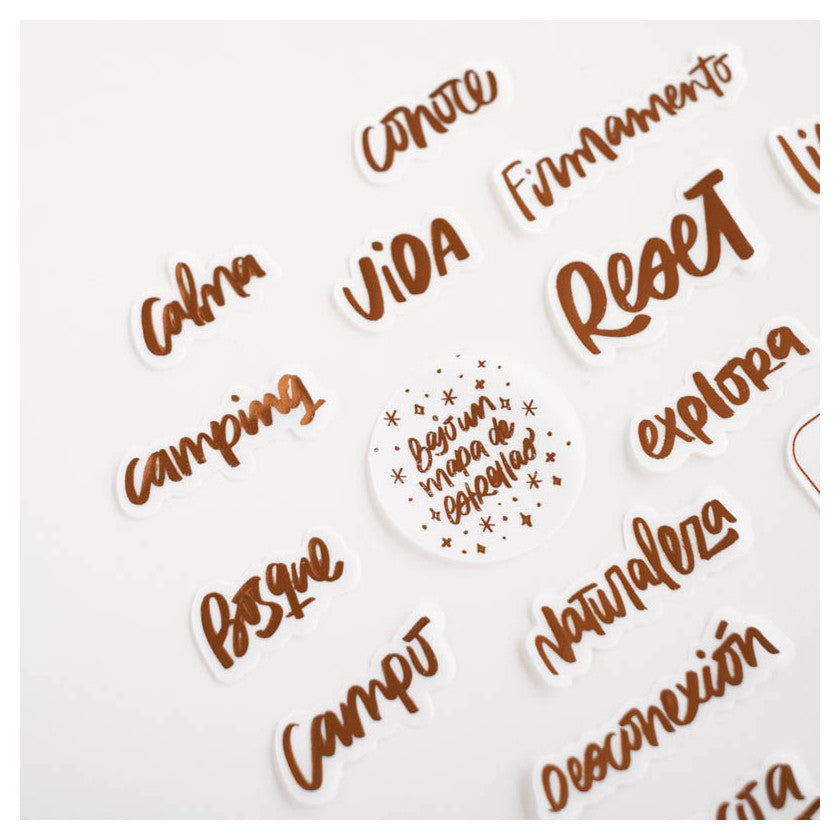 conoce
Firmamento
Calma
VIDA
Reset
camping
Bajo un
mapa de
estrellas
explora
Bosque
Naturaleza
campo
Desconexión